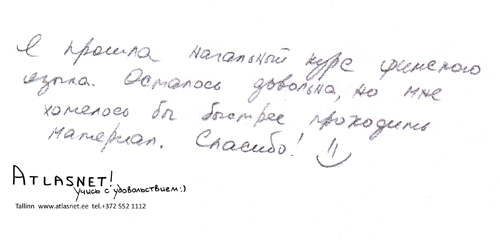 Я прошла начальный курс финского
языка. Осталось довольна, но мне
хотелось бы быстрее проходить
материал. Спасибо! =)
ATLASNET!
учись с удовольствием:)
Tallinn www.atlasnet.ee tel.+372 552 1112